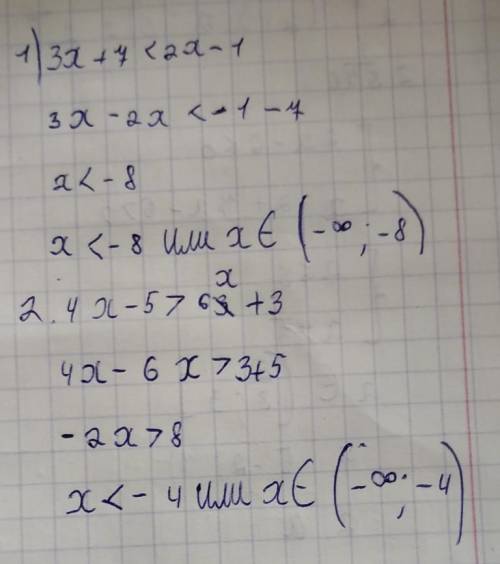 1) 3x + 7 < 2x - 1
3x - 2x < - 1 - 7
x < - 8
x < - 8 или x ∈ (-∞ ; -8)
2. 4x - 5 > 6x + 3
4x - 6x > 3+5
- 2x > 8
x < - 4 или x ∈ (-∞ ; -4)